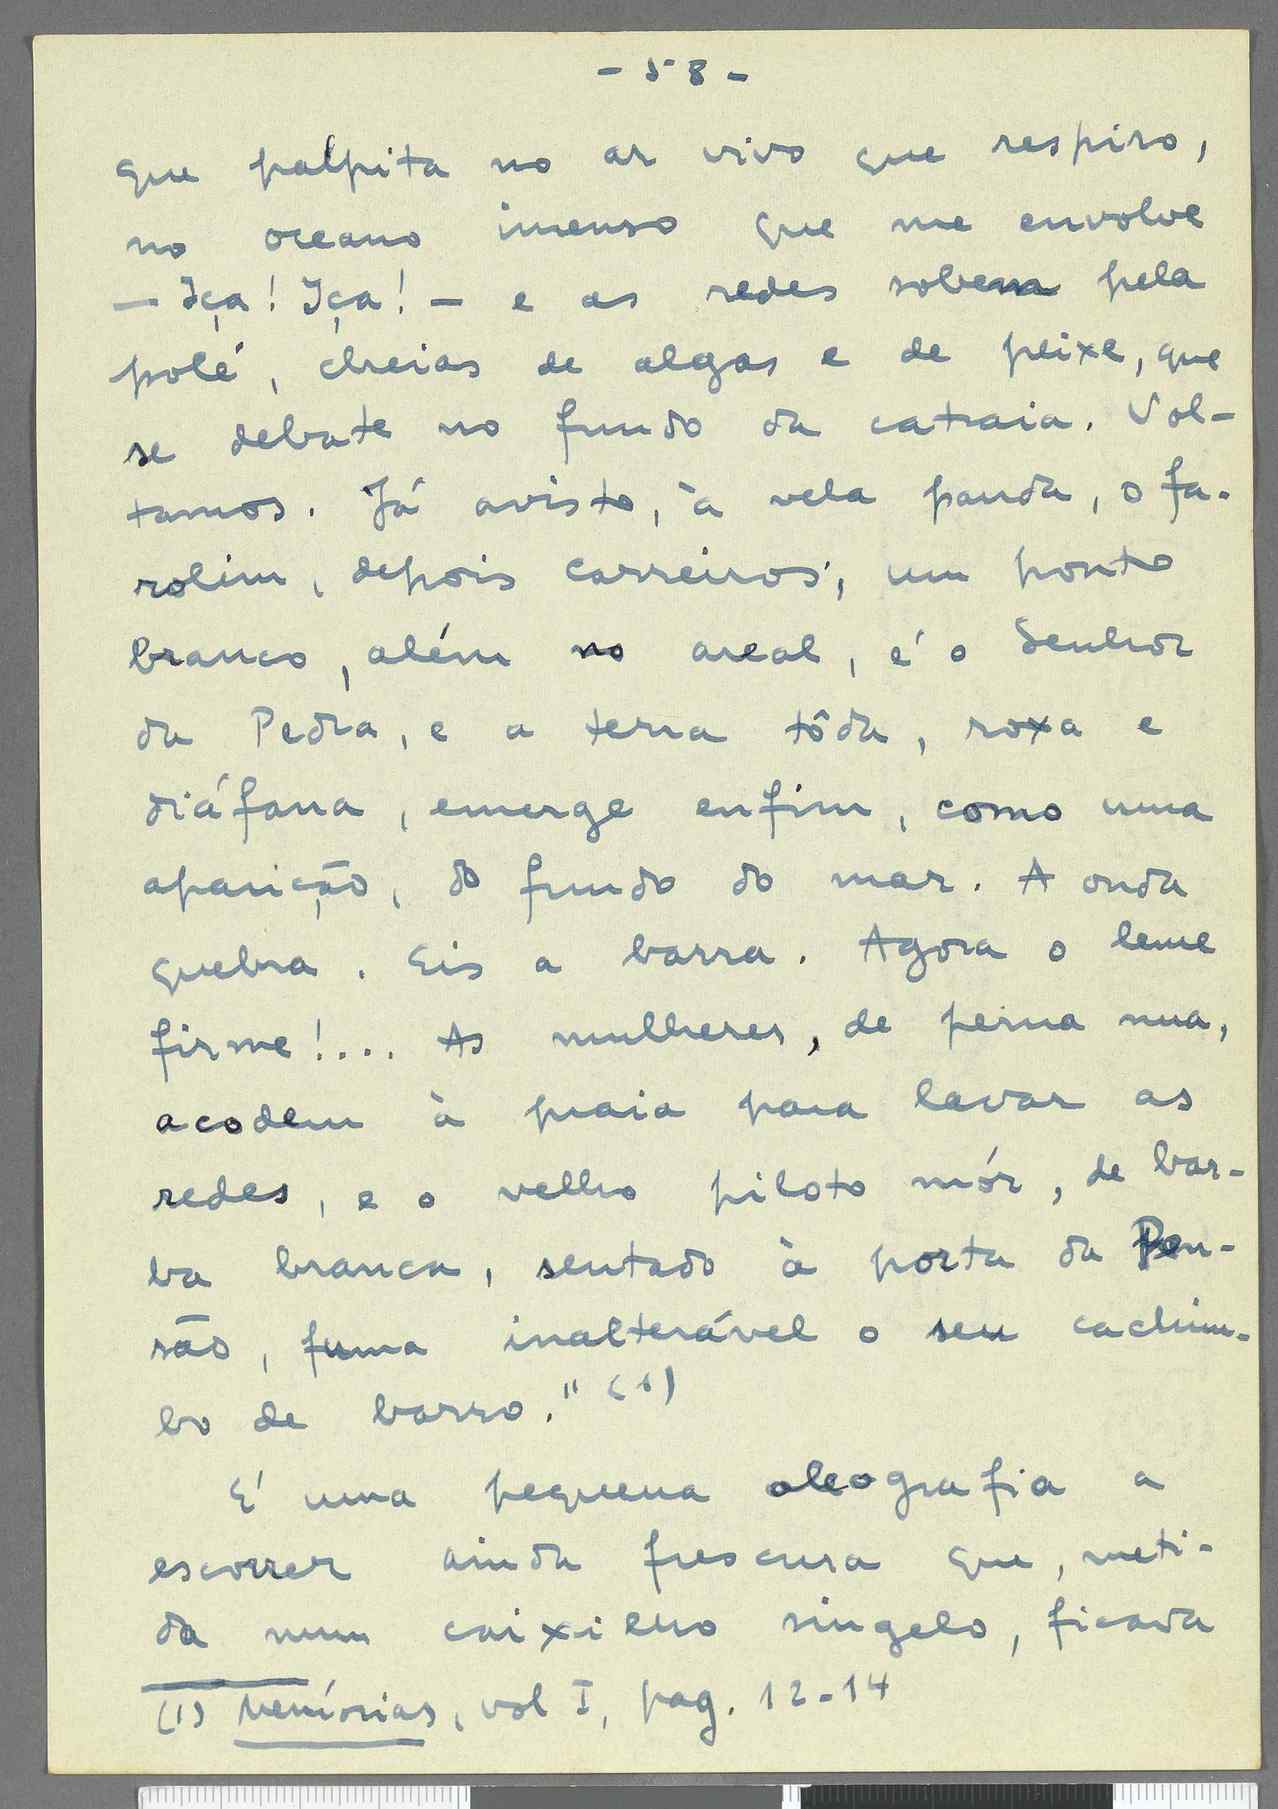 - 58 -
que palpita no ar vivo que respiro,
no oceano imenso que me envolve
— Iça! Iça! — e as redes sobem pela
polé, cheias de algas e de peixe, que
se debate no fundo da catraia. Vol-
tamos. Já avisto, à vela panda, o fa-
rolim, depois Carreiros; um ponto
branco, além no areal, é o Senhor
da Pedra, e a terra tôda, roxa e
diáfana, emerge enfim, como uma
aparição, do fundo do mar. A onda
quebra. Eis a barra. Agora o leme
firme!.... As mulheres, de perna nua,
acodem à praia para lavar as
redes, e o velho piloto mór, de bar-
ba branca, sentado à porta da Pen-
são, fuma inalterável o seu cachim-
bo de barro." (1)
É uma pequena oleografia a
escorrer ainda frescura que, meti-
da num caixilho singelo, ficava
(1) Memórias, vol I, pag. 12-14